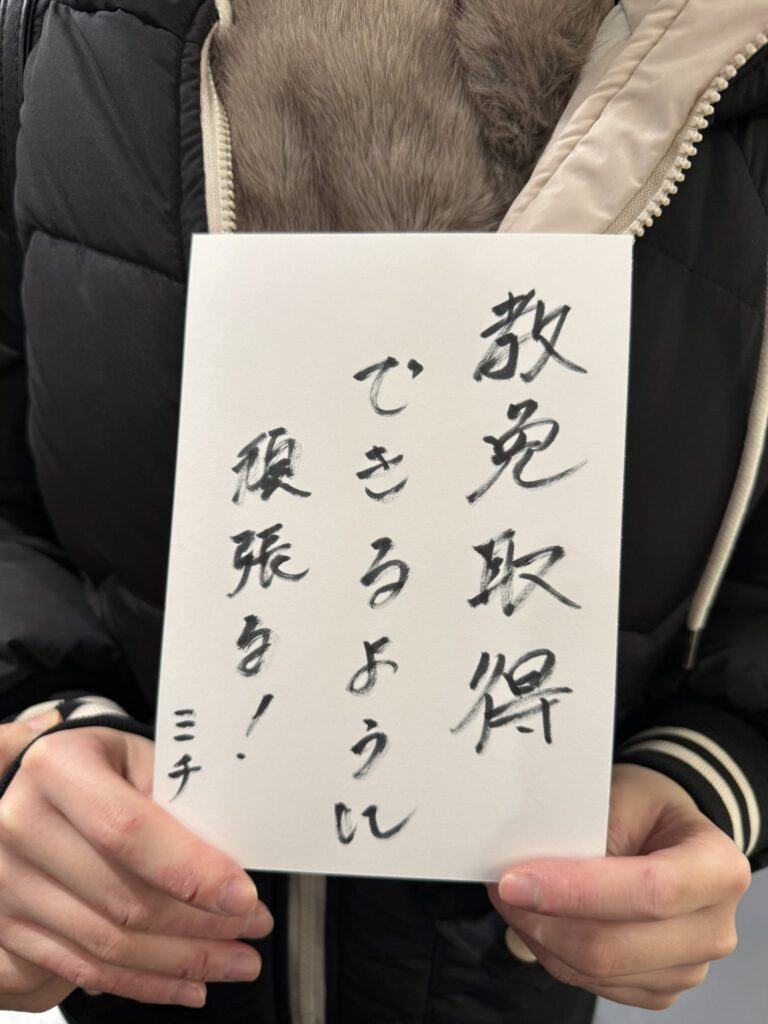 教免取得
できるように
頑張る!
ミチ